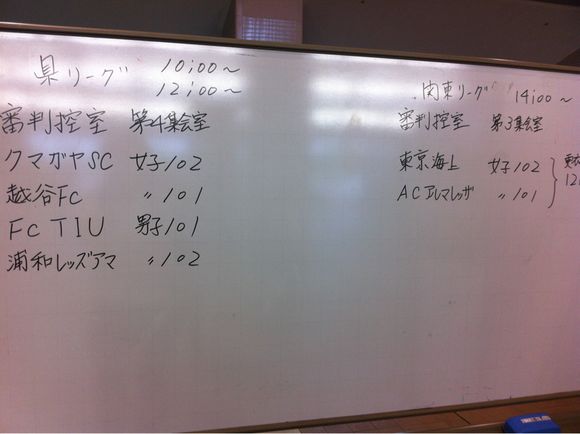 県リーグ 10:00〜
12:00〜
審判控室 第4集会室
クマガヤSC 女子102
越谷FC 〃101
FC TIU 男子101
浦和レッズアマ 〃102
関東リーグ 14:00〜
審判控室 第3集会室
東京海上 女子102
ACアルマレッザ 〃101